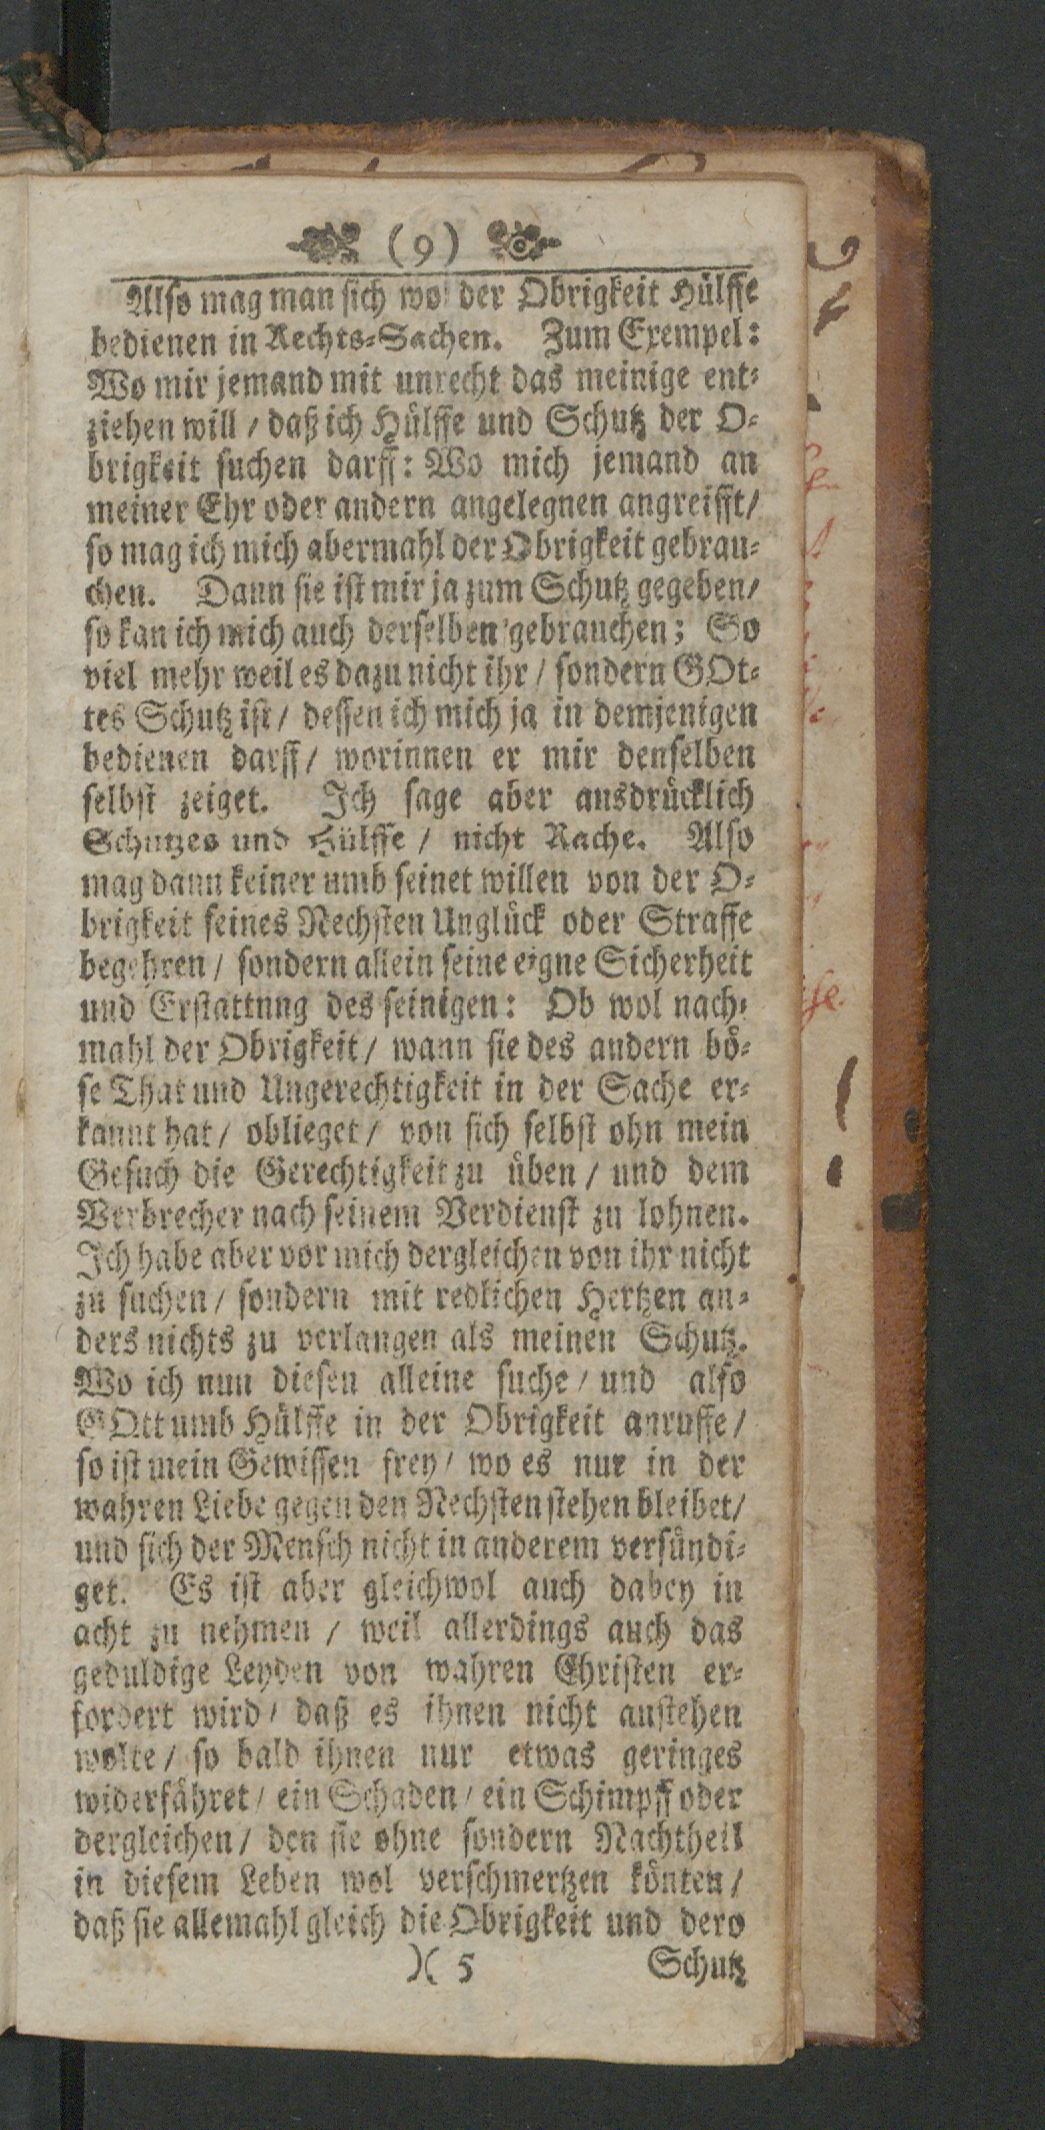 (9)
Also mag man sich wol der Obrigkeit Hülffe
bedienen in Rechts-Sachen. Zum Exempel:
Wo mir jemand mit unrecht das meinige ent-
ziehen will / daß ich Hülffe und Schutz der O-
brigkeit suchen darff: Wo mich jemand an
meiner Ehr oder andern angelegnen angreifft/
so mag ich mich abermahl der Obrigkeit gebrau-
chen. Dann sie ist mir ja zum Schutz gegeben/
so kan ich mich auch derselben gebrauchen; So
viel mehr weil es dazu nicht ihr / sondern GOt-
tes Schutz ist / dessen ich mich ja in demjenigen
bedienen darff / worinnen er mir denselben
selbst zeiget. Ich sage aber ausdrücklich
Schutzes und Hülffe / nicht Rache. Also
mag dann keiner umb seinet willen von der O-
brigkeit seines Nechsten Unglück oder Straffe
begehren / sondern allein seine eigne Sicherheit
und Erstattnng des seinigen: Ob wol nach-
mahl der Obrigkeit / wann sie des andern bö-
se That und Ungerechtigkeit in der Sache er-
kannt hat / oblieget / von sich selbst ohn mein
Gesuch die Gerechtigkeit zu üben / und dem
Verbrecher nach seinem Verdienst zu lohnen.
Ich habe aber vor mich dergleichen von ihr nicht
zu suchen / sondern mit redlichen Hertzen an-
ders nichts zu verlangen als meinen Schutz.
Wo ich nun diesen alleine suche / und also
GOtt umb Hülffe in der Obrigkeit anruffe /
so ist mein Gewissen frey / wo es nur in der
wahren Liebe gegen den Nechsten stehen bleibet/
und sich der Mensch nicht in anderem versündi-
get. Es ist aber gleichwol auch dabey in
acht zu nehmen / weil allerdings auch das
geduldige Leyden von wahren Christen er-
fordert wird / daß es ihnen nicht anstehen
wolte / so bald ihnen nur etwas geringes
widerfähret / ein Schaden / ein Schimpff oder
dergleichen / den sie ohne sondern Nachtheil
in diesem Leben wol verschmertzen könten /
daß sie allemahl gleich die Obrigkeit und dero
)( 5 Schutz